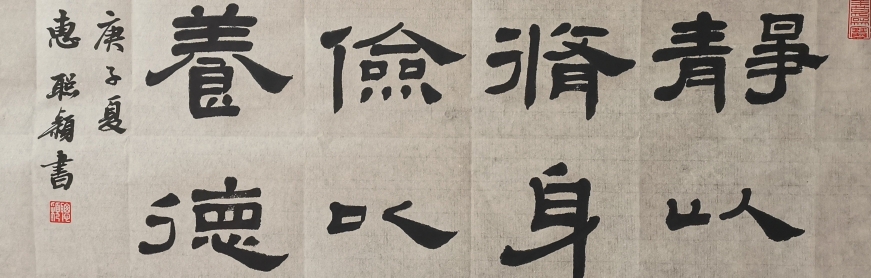 靜以
脩身
儉以
養德
庚子夏
惠聯穎書